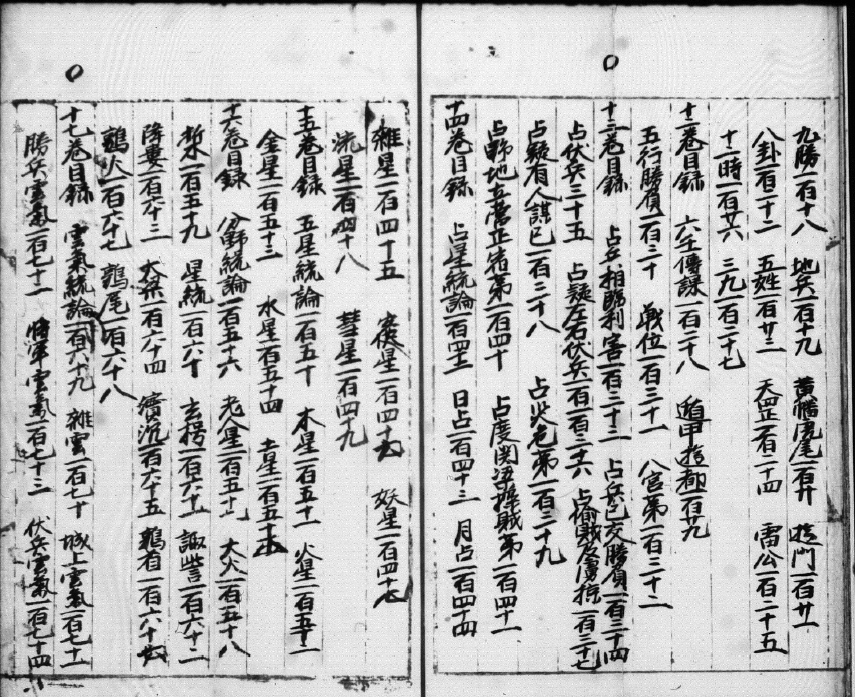 九勝一百十八 地兵一百十九 黄幡虎尾一百廿 門一百廿一
八卦一百二十二 五姓一百廿三 天罡一百二十四 雷公一百二十五
十二時一百廿六 三九一百二十七
十二巻目録 六壬傳課一百二十八 遁甲 一百廿九
五行勝負一百三十 戦位一百三十一 八宮第一百三十二
十三巻目録 占兵相勝利害一百三十三 占兵已交勝負一百三十四
占伏兵三十五 占疑左右伏兵一百三十六 占偷賊及虜掠一百三十七
占疑有人謀已一百三十八 占 第一百三十九
占野地立营 第一百四十 占度関梁 賊第一百四十一
十四巻目録 占星統論一百四十二 日占一百四十三 月占一百四十四
雜星一百四十五 星一百四十六 妖星一百四十七
流星一百四十八 彗星一百四十九
十五巻目録 五星統論一百五十 木星一百五十一 火星一百五十二
金星一百五十三 水星一百五十四 土星一百五十五
十六巻目録 分野統論一百五十六 老人星一百五十七 大火一百五十八
析木一百五十九 星統一百六十 玄枵一百六十一 諏訾一百六十二
降婁一百六十三 大梁一百六十四 實沉一百六十五 鶉首一百六十六
鶉火一百六十七 鶉尾一百六十八
十七巻目録 雲氣統論一百六十九 雜雲一百七十 城上雲氣一百七十一
勝兵雲氣一百七十二 将軍雲氣一百七十三 伏兵雲氣一百七十四